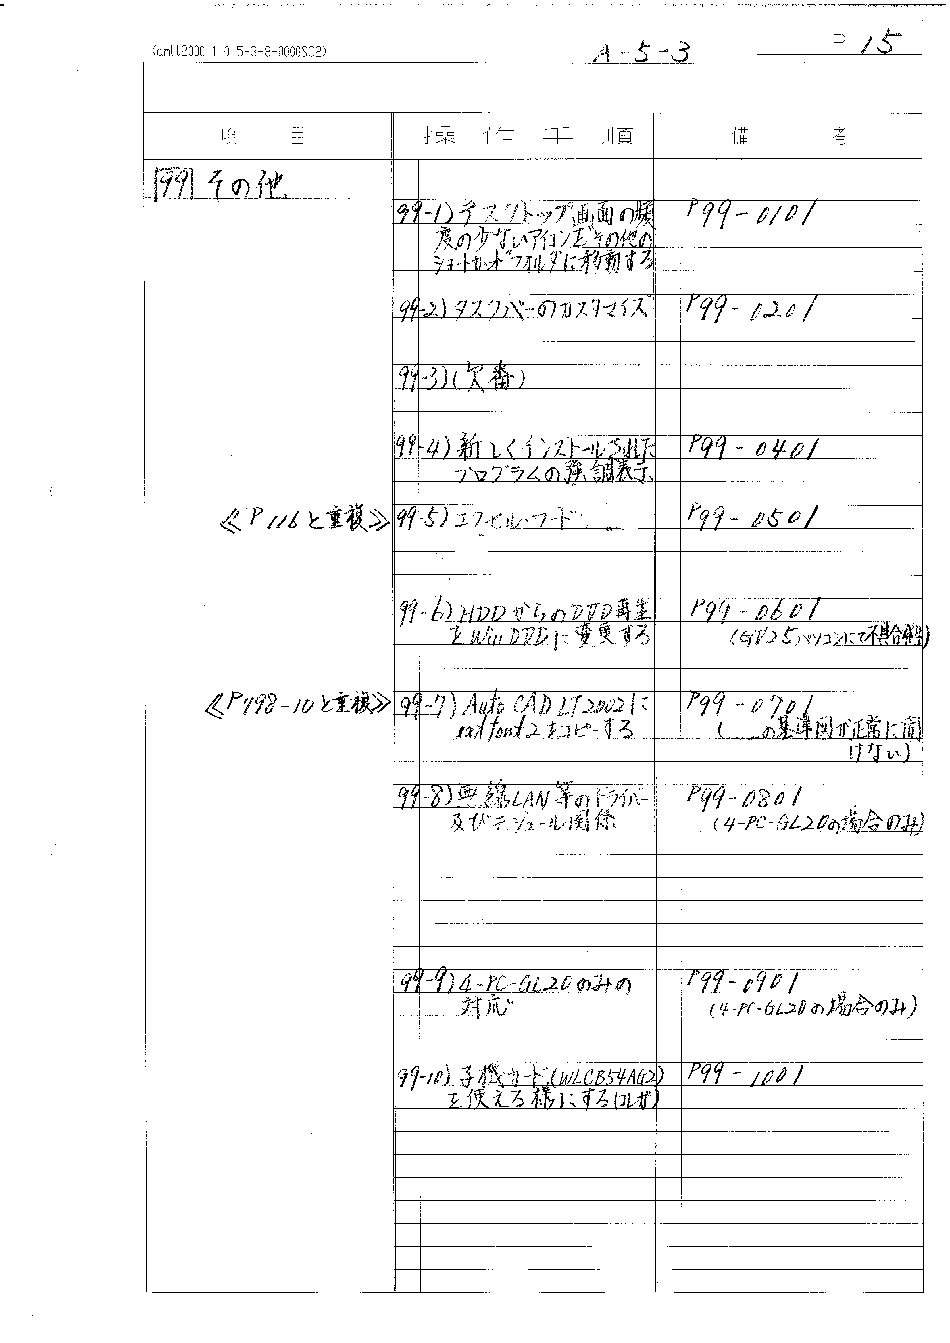 A-5-3
P 15
項 目
操 作 手 順
備 考
99 その他
99-1) デスクトップ画面の頻
度の少ないアイコンをその他の
ショートカットフォルダに移動する
P99-0101
99-2) タスクバーのカスタマイズ
P99-0201
99-3) (欠番)
99-4) 新しくインストールされた
プログラムの強調表示
P99-0401
≪P116と重複≫
99-5) エクセル・ワード
P99-0501
99-6) HDDからのDVD再生
をWinDVDに変更する
P99-0601
≪P498-10と重複≫
99-7) Auto CAD LT2002に
extfont2をコピーする
P99-0701
の基準図が正常に開
けない)
99-8) 無線LAN等のドライバー
及びモジュール関係
P99-0801
(4-PC-GL20の場合のみ)
99-9) 4-PC-GL20のみの
対応
P99-0901
(4-PC-GL20の場合のみ)
99-10) 子機カード(WLCB54AG2)
を使える様にする(コレガ)
P99-1001